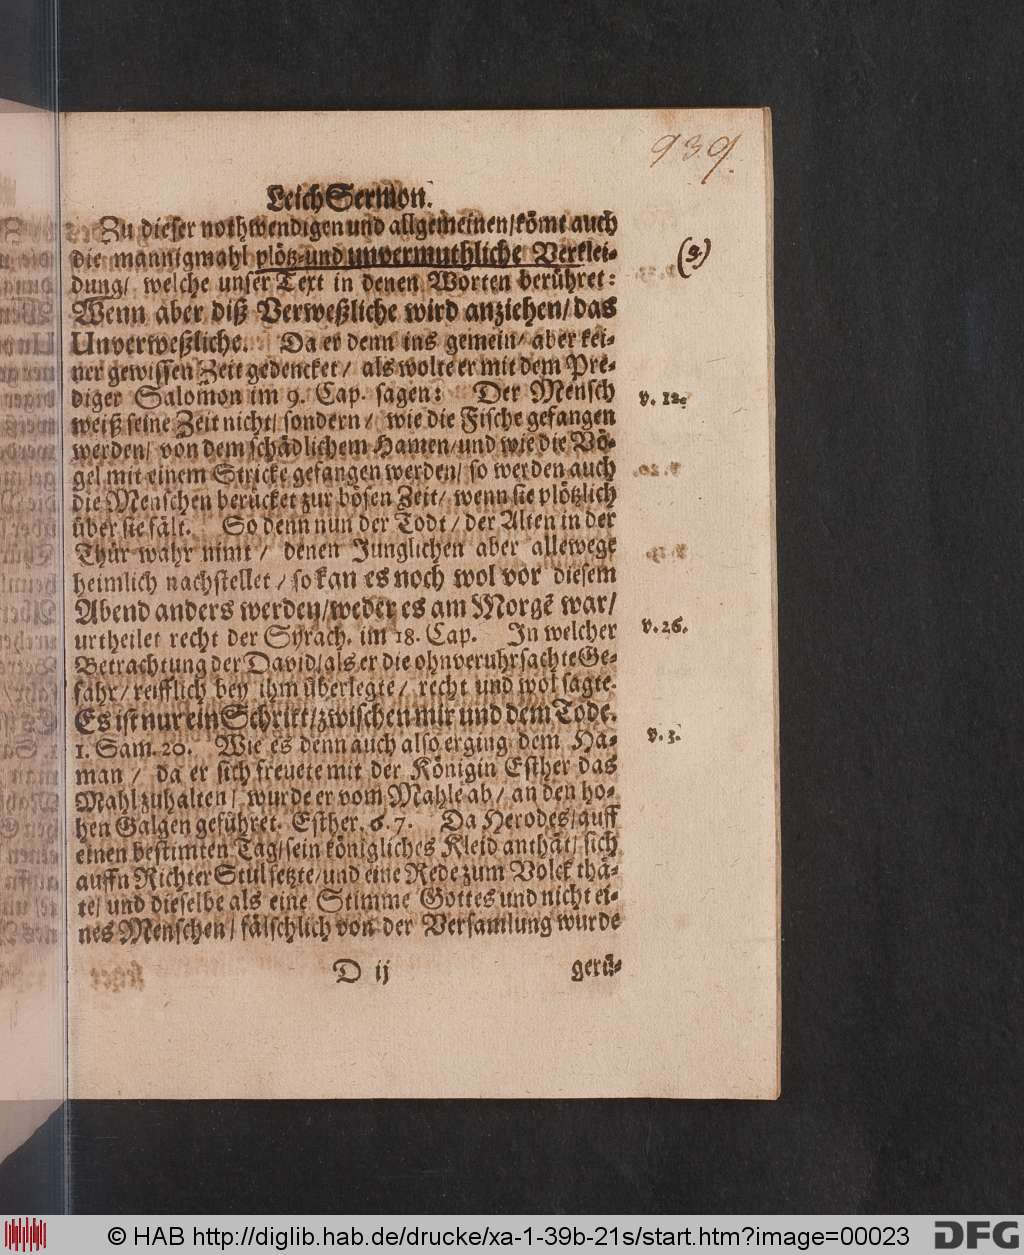 939.
Leich Sermon.
Zu dieser nothwendigen und allgemeinen/ kömt auch
die mannigmahl plötz- und unvermuthliche Verklei-
(2)
dung/ welche unser Text in denen Worten berühret:
Wenn aber diß Verweßliche wird anziehen/ das
Unverweßliche. Da er denn ins gemein/ aber kei-
ner gewissen Zeit gedencket/ als wolte er mit dem Pre-
diger Salomon im 9. Cap. sagen: Der Mensch
v. 12.
weiß seine Zeit nicht/ sondern/ wie die Fische gefangen
werden/ von dem schädlichem Hamen/ und wie die Vö-
gel mit einem Stricke gefangen werden/ so werden auch
die Menschen berücket zur bösen Zeit/ wenn sie plötzlich
über sie fält. So denn nun der Todt/ der Alten in der
Thür wahr nimt/ denen Junglichen aber allewege
heimlich nachstellet/ so kan es noch wol vor diesem
Abend anders werden/ weder es am Morgẽ war/
urtheilet recht der Syrach. im 18. Cap. In welcher
v. 26.
Betrachtung der David/ als er die ohnveruhrsachte Ge-
fahr/ reifflich bey ihm überlegte/ recht und wol sagte.
Es ist nur ein Schritt/ zwischen mir und dem Tode.
1. Sam. 20. Wie es denn auch also erging dem Ha-
v. 3.
man/ da er sich freuete mit der Königin Esther das
Mahl zuhalten/ wurde er vom Mahle ab/ an den ho-
hen Galgen geführet. Esther. 6. 7. Da Herodes/ auff
einen bestimten Tag/ sein königliches Kleid anthät/ sich
auffn Richter Stul setzte/ und eine Rede zum Volck thä-
te/ und dieselbe als eine Stimme Gottes und nicht ei-
nes Menschen/ fälschlich von der Versamlung wurde
D ij
gerü-
© HAB http://diglib.hab.de/drucke/xa-1-39b-21s/start.htm?image=00023
DFG